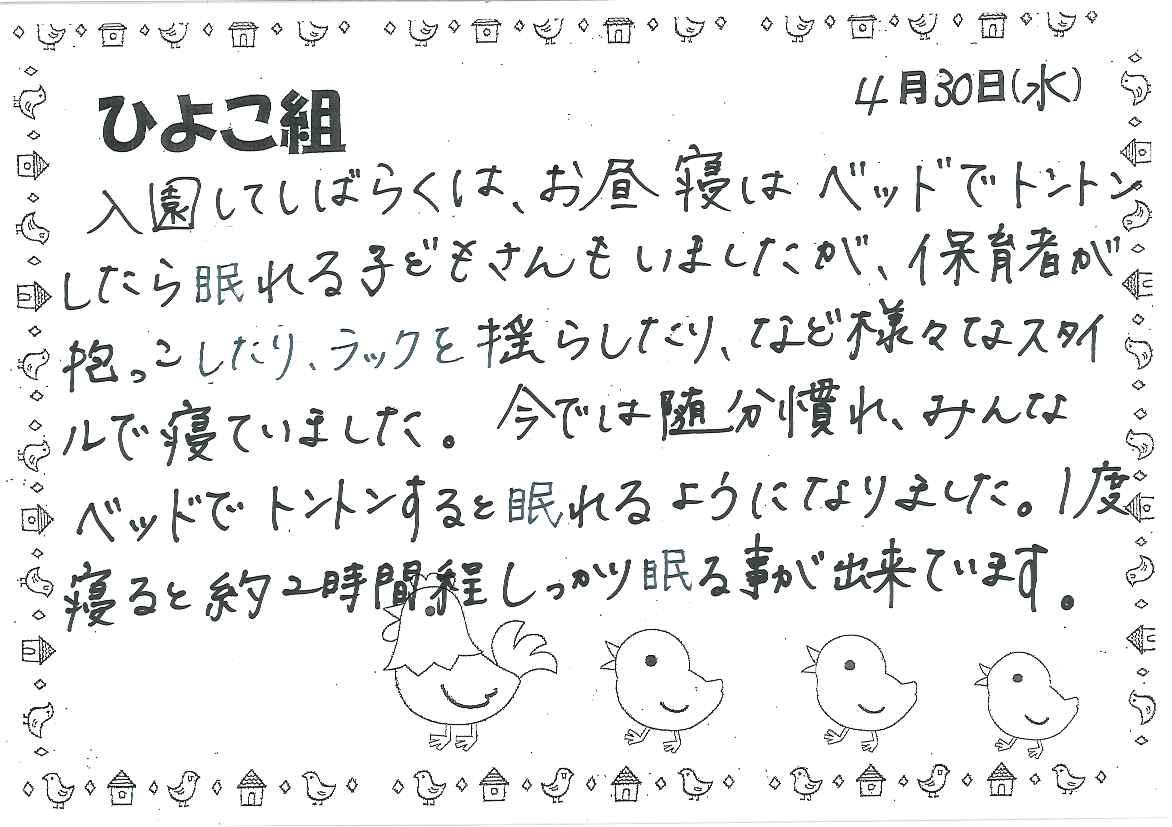 4月30日(水)
ひよこ組
入園してしばらくは、お昼寝はベッドでトントン
したら眠れる子どもさんもいましたが、保育者が
抱っこしたり、ラックを揺らしたり、など様々なスタイ
ルで寝ていました。今では随分慣れ、みんな
ベッドでトントンすると眠れるようになりました。1度
寝ると約2時間程しっかり眠る事が出来ています。